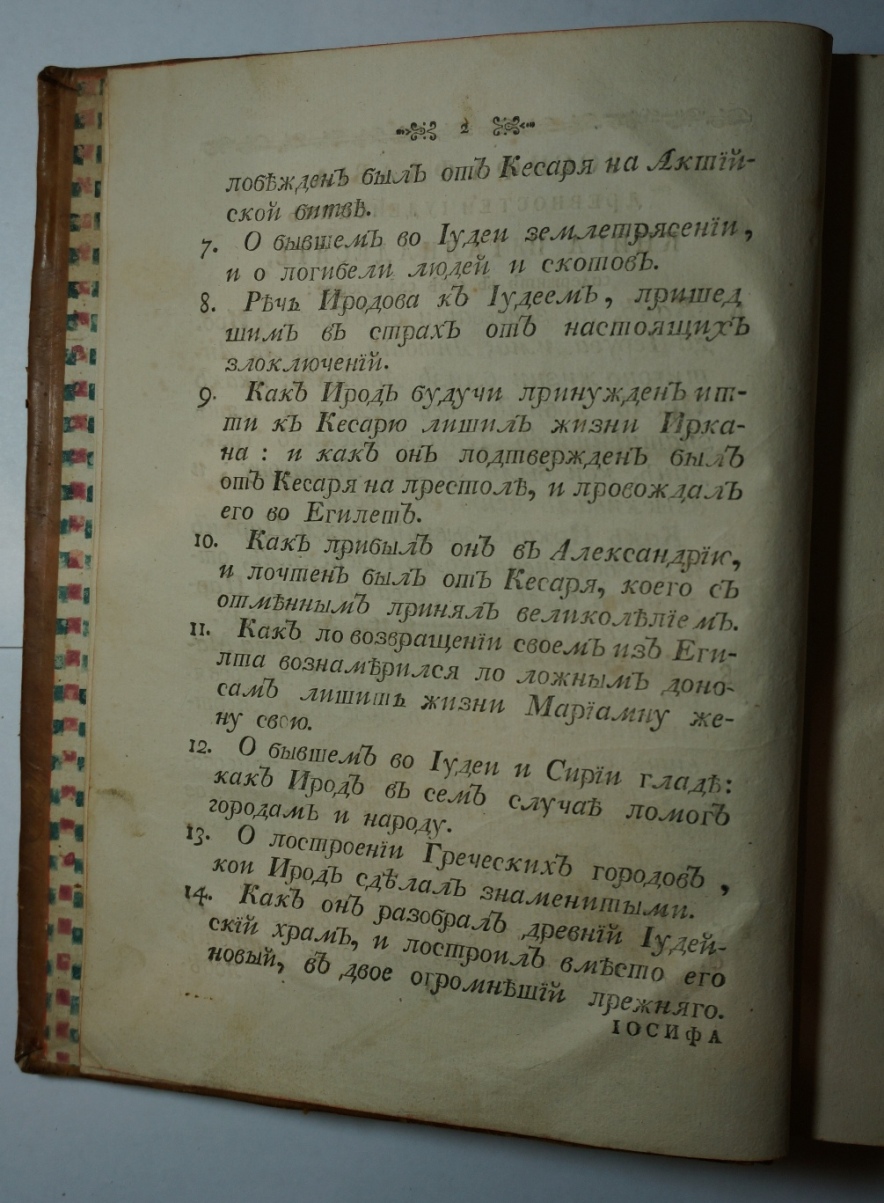 2
побѣжденъ былъ отъ Кесаря на Актїй-
ской битвѣ.
7. О бывшемъ во Іудеи землетрясенїи,
и о погибели людей и скотовъ.
8. Рѣчь Иродова къ Іудеемъ, пришед
шимъ въ страхъ отъ настоящихъ
злоключенїй.
9. Какъ Иродъ будучи принужденъ ит-
ти къ Кесарю лишилъ жизни Ирка-
на : и какъ онъ подтвержденъ былъ
отъ Кесаря на престолѣ, и провождалъ
его во Египетъ.
10. Какъ прибылъ онъ въ Александрїю,
и почтенъ былъ отъ Кесаря, коего съ
отмѣннымъ принялъ великолѣпїемъ.
11. Какъ по возвращенїи своемъ изъ Еги-
пта вознамѣрился по ложнымъ доно-
самъ лишить жизни Марїамну же-
ну свою.
12. О бывшемъ во Іудеи и Сирїи гладѣ:
какъ Иродъ въ семъ случаѣ помогъ
городамъ и народу.
13. О построенїи Греческихъ городовъ ,
кои Иродъ сдѣлалъ знаменитыми.
14. Какъ онъ разобралъ древнїй Іудей-
скїй храмъ, и построилъ вмѣсто его
новый, въ двое огромнѣшїй прежняго.
ІОСИФА